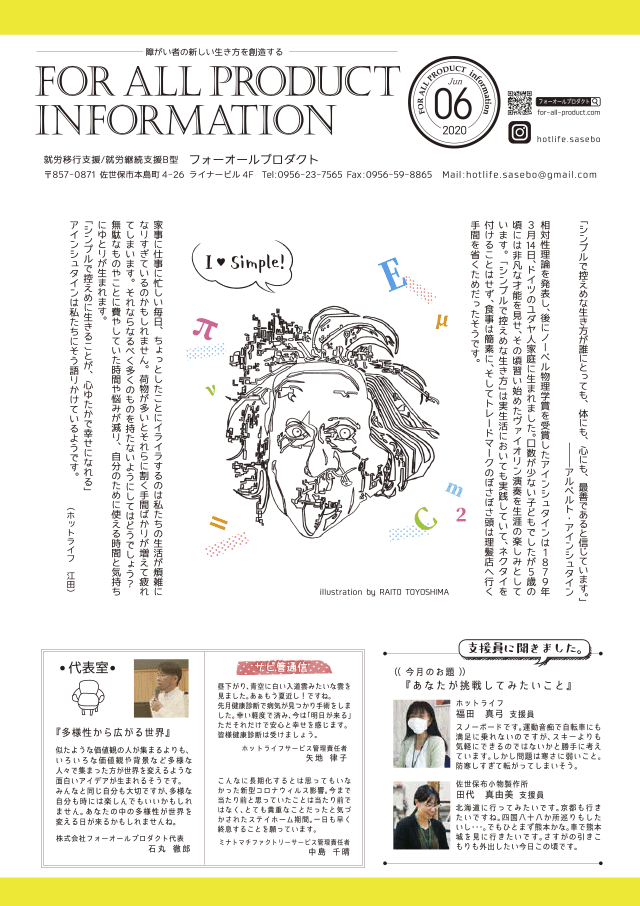 障がい者の新しい生き方を創造する
FOR ALL PRODUCT
INFORMATION
FOR ALL PRODUCT information
Jun
06
2020
フォーオールプロダクト
for-all-product.com
hotlife.sasebo
就労移行支援/就労継続支援B型 フォーオールプロダクト
〒857-0871 佐世保市本島町4-26 ライナービル4F Tel:0956-23-7565 Fax:0956-59-8865 Mail:hotlife.sasebo@gmail.com
「シンプルで控えめな生き方が誰にとっても、体にも、心にも、最善であると信じています。」
――アルベルト・アインシュタイン
相対性理論を発表し、後にノーベル物理学賞を受賞したアインシュタインは1879年
3月14日、ドイツのユダヤ人家庭に生まれました。口数が少ない子どもでしたが5歳の
頃には非凡な才能を見せ、その頃習い始めたヴァイオリン演奏を生涯の楽しみとして
います。「シンプルで控えめな生き方」は実生活においても実践していて、ネクタイを
付けることはせず、食事は簡素に、そしてトレードマークのぼさぼさ頭は理髪店へ行く
手間を省くためだったそうです。
I ♥ Simple!
E
π
μ
ν
m
C
2
=
illustration by RAITO TOYOSHIMA
家事に仕事に忙しい毎日、ちょっとしたことにイライラするのは私たちの生活が煩雑に
なりすぎているのかもしれません。荷物が多いとそれらに割く手間ばかりが増えて疲れ
てしまいます。それならなるべく多くのものを持たないようにしてはどうでしょう?
無駄なものやことに費やしていた時間や悩みが減り、自分のために使える時間と気持ち
にゆとりが生まれます。
「シンプルで控えめに生きることが、心ゆたかで幸せになれる」
アインシュタインは私たちにそう語りかけているようです。
(ホットライフ 江田)
•代表室•
『多様性から広がる世界』
似たような価値観の人が集まるよりも、
いろいろな価値観や背景など多様な
人々で集まった方が世界を変えるような
面白いアイデアが生まれるそうです。
みんなと同じ自分も大切ですが、多様な
自分も時には楽しんでもいいかもしれ
ません。あなたの中の多様性が世界を
変える日が来るかもしれませんね。
株式会社フォーオールプロダクト代表
石丸 徹郎
サビ管通信
昼下がり、青空に白い入道雲みたいな雲を
見ました。あぁもう夏近し!ですね。
先月健康診断で病気が見つかり手術をしま
した。幸い軽度で済み、今は「明日が来る」
ただそれだけで安心と幸せを感じます。
皆様健康診断は受けましょう。
ホットライフサービス管理責任者
矢地 律子
こんなに長期化するとは思ってもいな
かった新型コロナウィルス影響。今まで
当たり前と思っていたことは当たり前で
はなく、とても貴重なことだったと気づ
かされたステイホーム期間。一日も早く
終息することを願っています。
ミナトマチファクトリーサービス管理責任者
中島 千晴
支援員に聞きました。
(( 今月のお題 ))
『あなたが挑戦してみたいこと』
ホットライフ
福田 真弓 支援員
スノーボードです。運動音痴で自転車にも
満足に乗れないのですが、スキーよりも
気軽にできるのではないかと勝手に考え
ています。しかし問題は寒さに弱いこと。
防寒しすぎて転がってしまいそう。
佐世保市小物製作所
田代 真由美 支援員
北海道に行ってみたいです。京都も行き
たいですね。四国八十八か所巡りもした
いし・・・。でもひとまず熊本かな。車で熊本
城を見に行きたいです。さすがの引きこ
もりも外出したい今日この頃です。